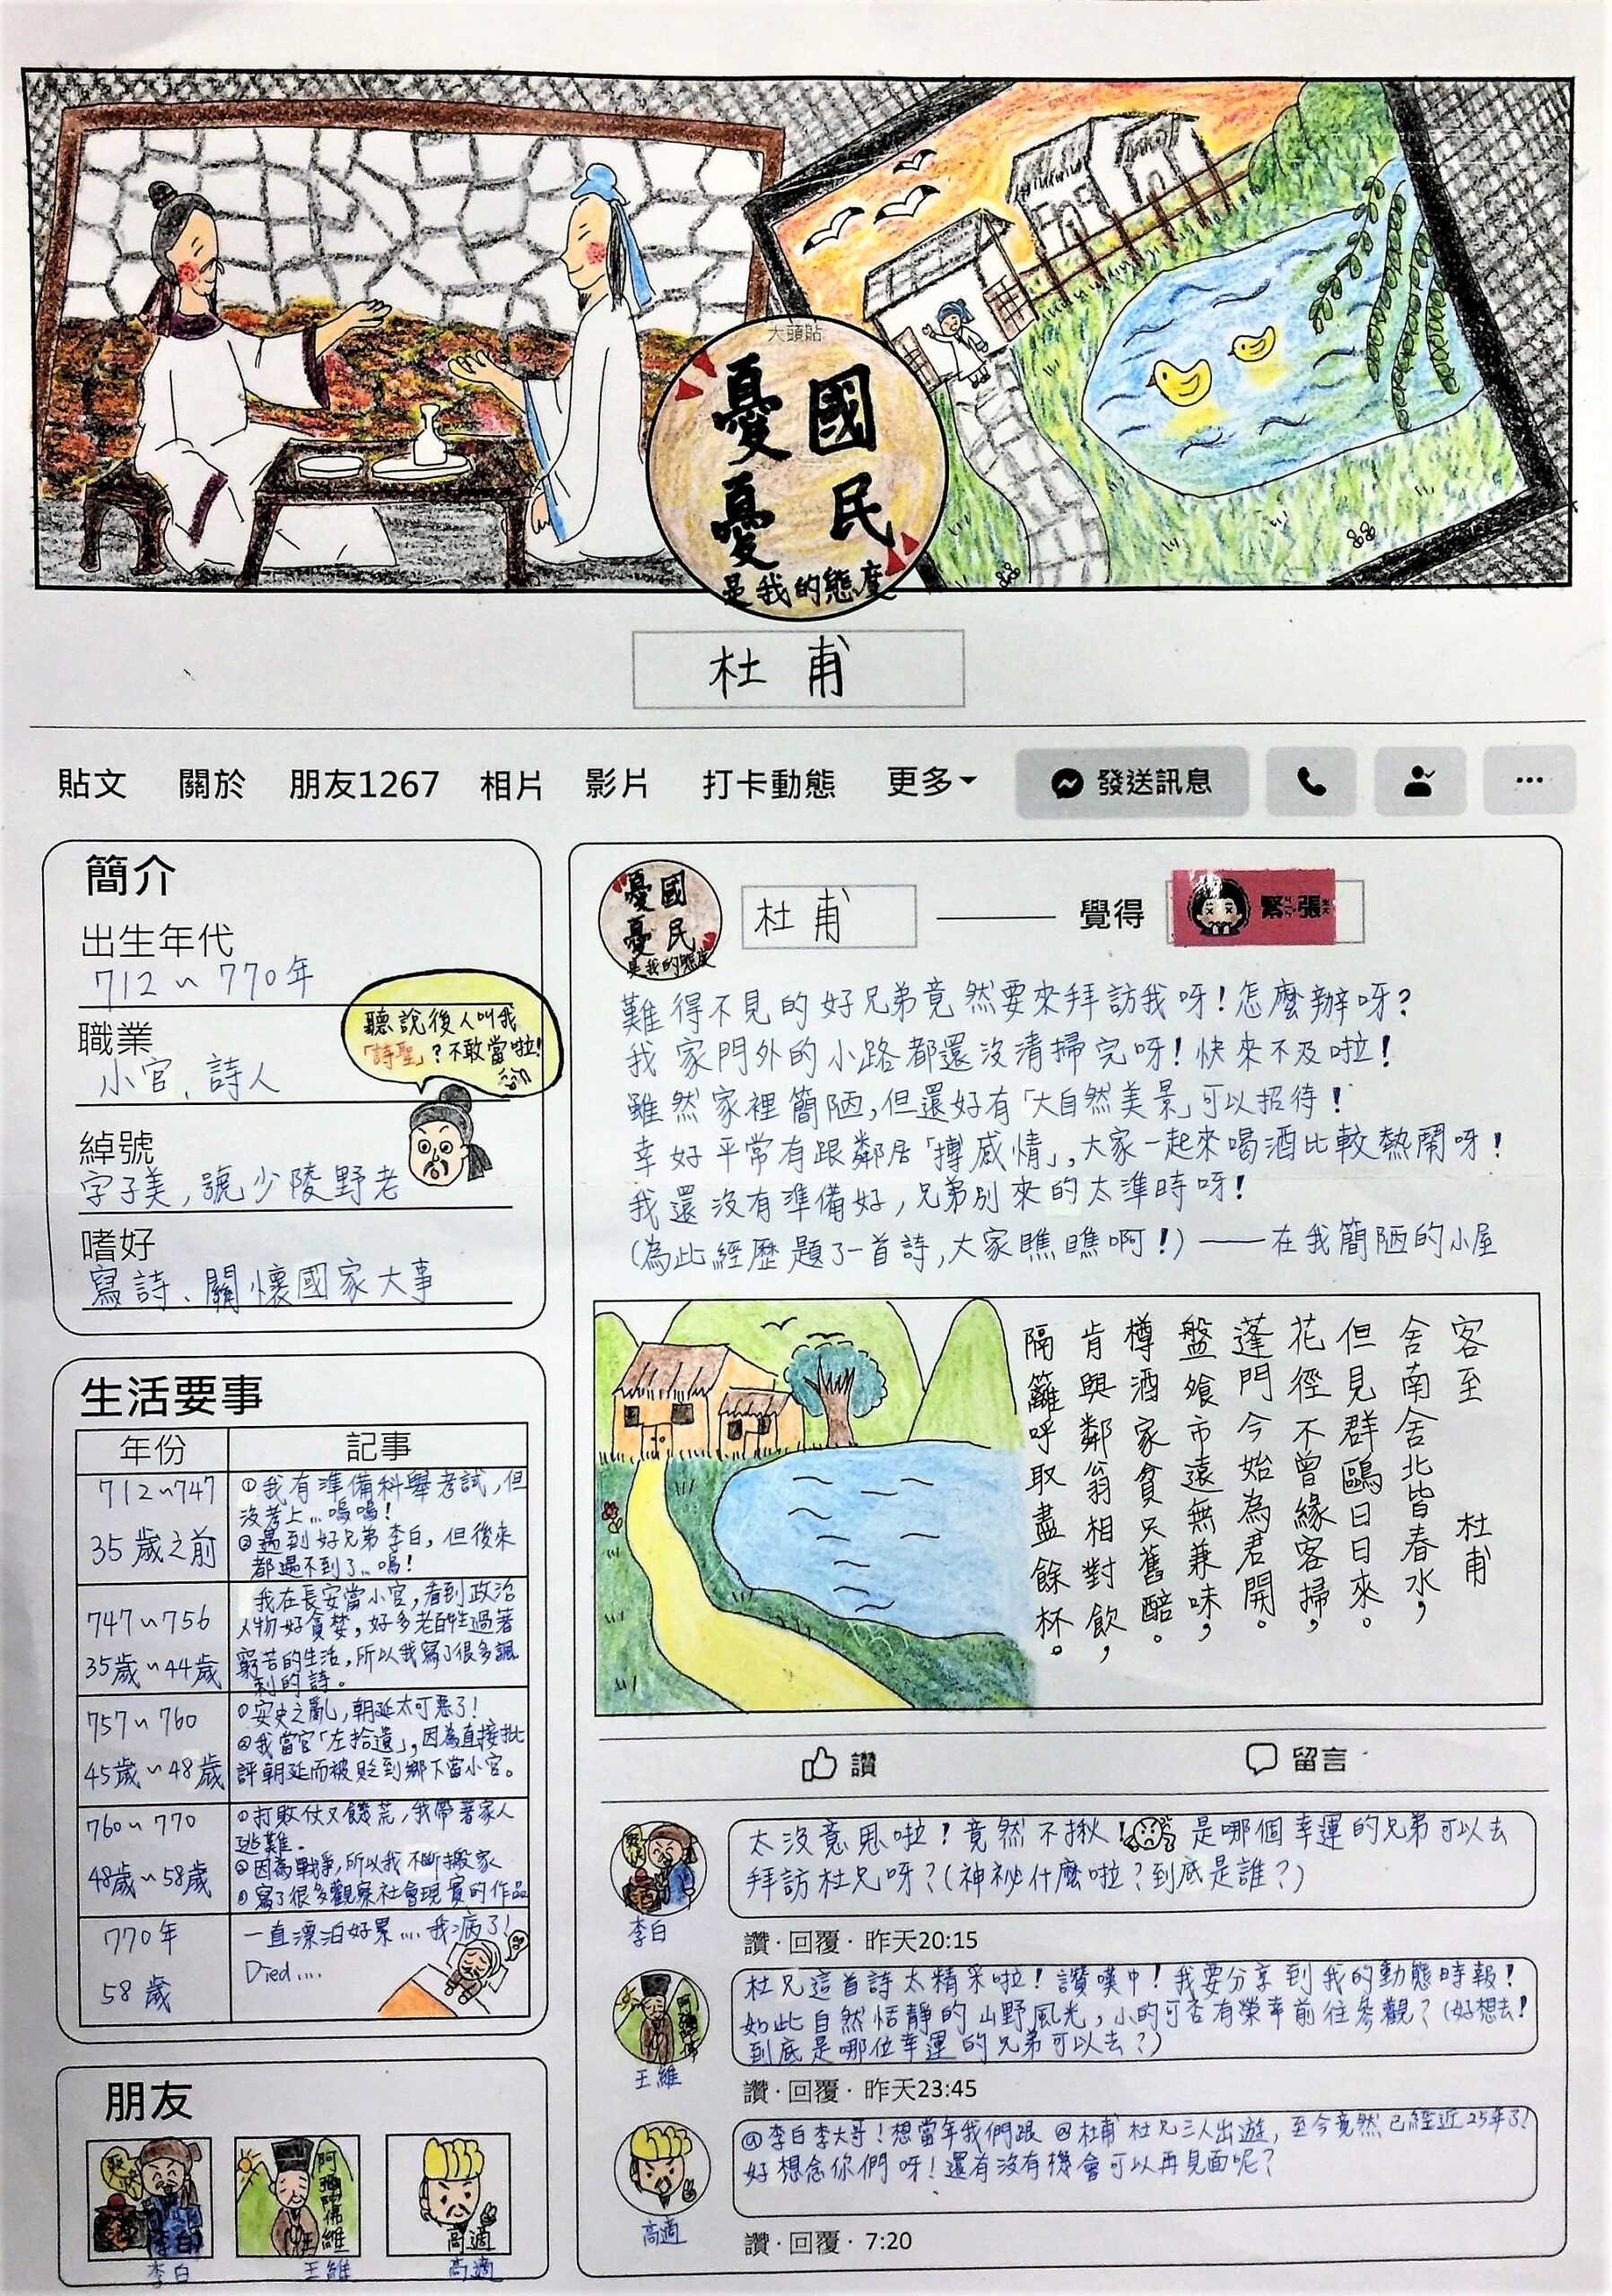 大頭貼
憂國
憂民
是我的態度
杜甫
貼文 關於 朋友1267 相片 影片 打卡動態 更多 發送訊息 ...
簡介
出生年代
712~770年
職業
小官、詩人
聽說後人叫我
「詩聖」?不敢當啦!
綽號
字子美,號少陵野老
嗜好
寫詩、關懷國家大事
生活要事
年份 記事
712~747
35歲之前
①我有準備科舉考試,但
沒考上…嗚嗚!
②遇到好兄弟李白,但後來
都遇不到了…嗚!
747~756
35歲~44歲
我在長安當小官,看到政治
人物好貪婪,好多老百姓過著
窮苦的生活,所以我寫了很多諷
刺的詩。
757~760
45歲~48歲
①安史之亂,朝廷太可惡了!
②我當官「左拾遺」,因為直接批
評朝廷而被貶到鄉下當小官。
760~770
48歲~58歲
①打敗仗又饑荒,我帶著家人
逃難。
②因為戰爭,所以我不斷搬家
③寫了很多觀察社會現實的作品
770年
58歲
一直漂泊好累....我病了!
Died....
朋友
李白
李白
阿彌陀佛
王維
王維
高適
高適
憂國
憂民
是我的態度
杜甫 —— 覺得 緊張
難得不見的好兄弟竟然要來拜訪我呀!怎麼辦呀?
我家門外的小路都還沒清掃完呀!快來不及啦!
雖然家裡簡陋,但還好有「大自然美景」可以招待!
幸好平常有跟鄰居「搏感情」,大家一起來喝酒比較熱鬧呀!
我還沒有準備好,兄弟別來的太準時呀!
(為此經歷題了一首詩,大家瞧瞧啊!)——在我簡陋的小屋
客至 杜甫
舍南舍北皆春水,
但見群鷗日日來。
花徑不曾緣客掃,
蓬門今始為君開。
盤飧市遠無兼味,
樽酒家貧只舊醅。
肯與鄰翁相對飲,
隔籬呼取盡餘杯。
讚 留言
李白
太沒意思啦!竟然不揪! 是哪個幸運的兄弟可以去
拜訪杜兄呀?(神祕什麼啦?到底是誰?)
讚·回覆· 昨天20:15
王維
杜兄這首詩太精采啦!讚嘆中!我要分享到我的動態時報!
如此自然恬靜的山野風光,小的可否有榮幸前往參觀?(好想去!
到底是哪位幸運的兄弟可以去?)
讚·回覆· 昨天23:45
高適
@李白李大哥!想當年我們跟@杜甫杜兄三人出遊,至今竟然已經近25年了!
好想念你們呀!還有沒有機會可以再見面呢?
讚·回覆· 7:20